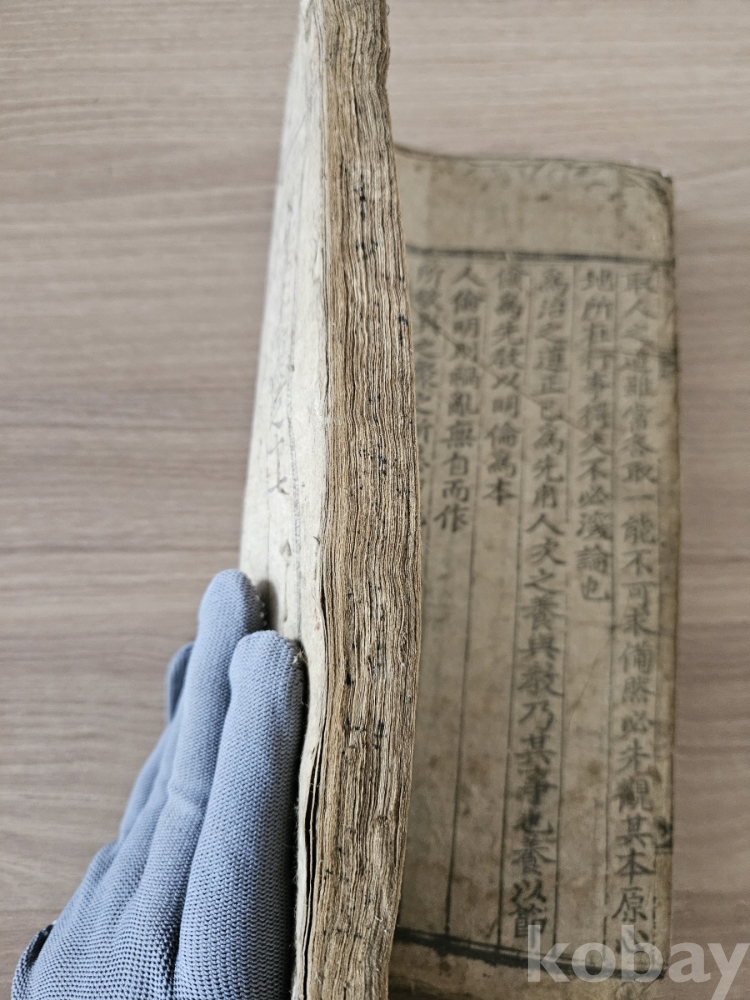 取人之道雖當各取一能不可求備然必先觀其本原心
地所在行事得失不必深論也
為治之道正己為先用人次之養與教乃其事也養以節
儉為先教以明倫為本
人倫明則禍亂無自而作
所
卷十七
kobay